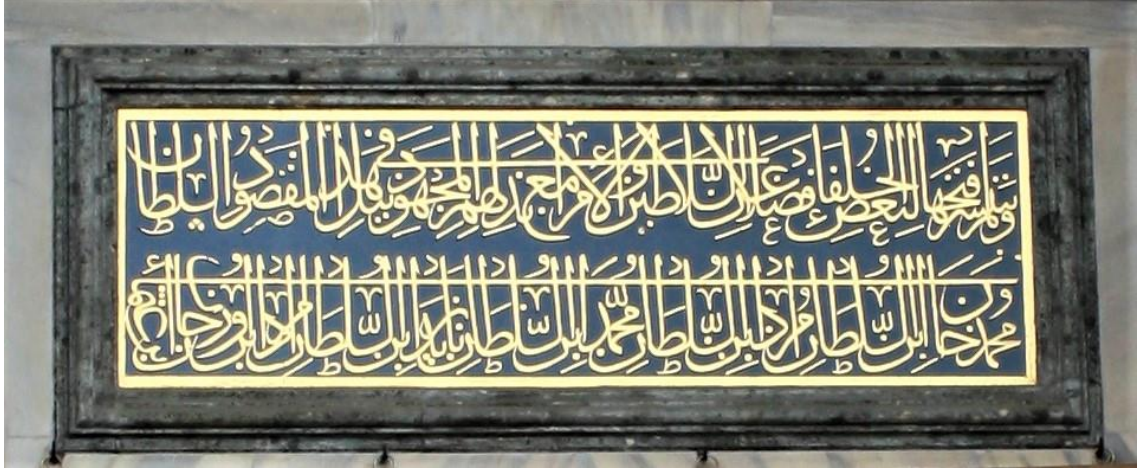 ولم يتيسر فتحها لبعض الخلفاء فضلا عن السلاطين والامراء مع بذلهم المجهود في هذا المقصود السلطان
محمد خان ابن السلطان مراد بن السلطان محمد بن السلطان بايزيد ابن السلطان مراد بن اورخان